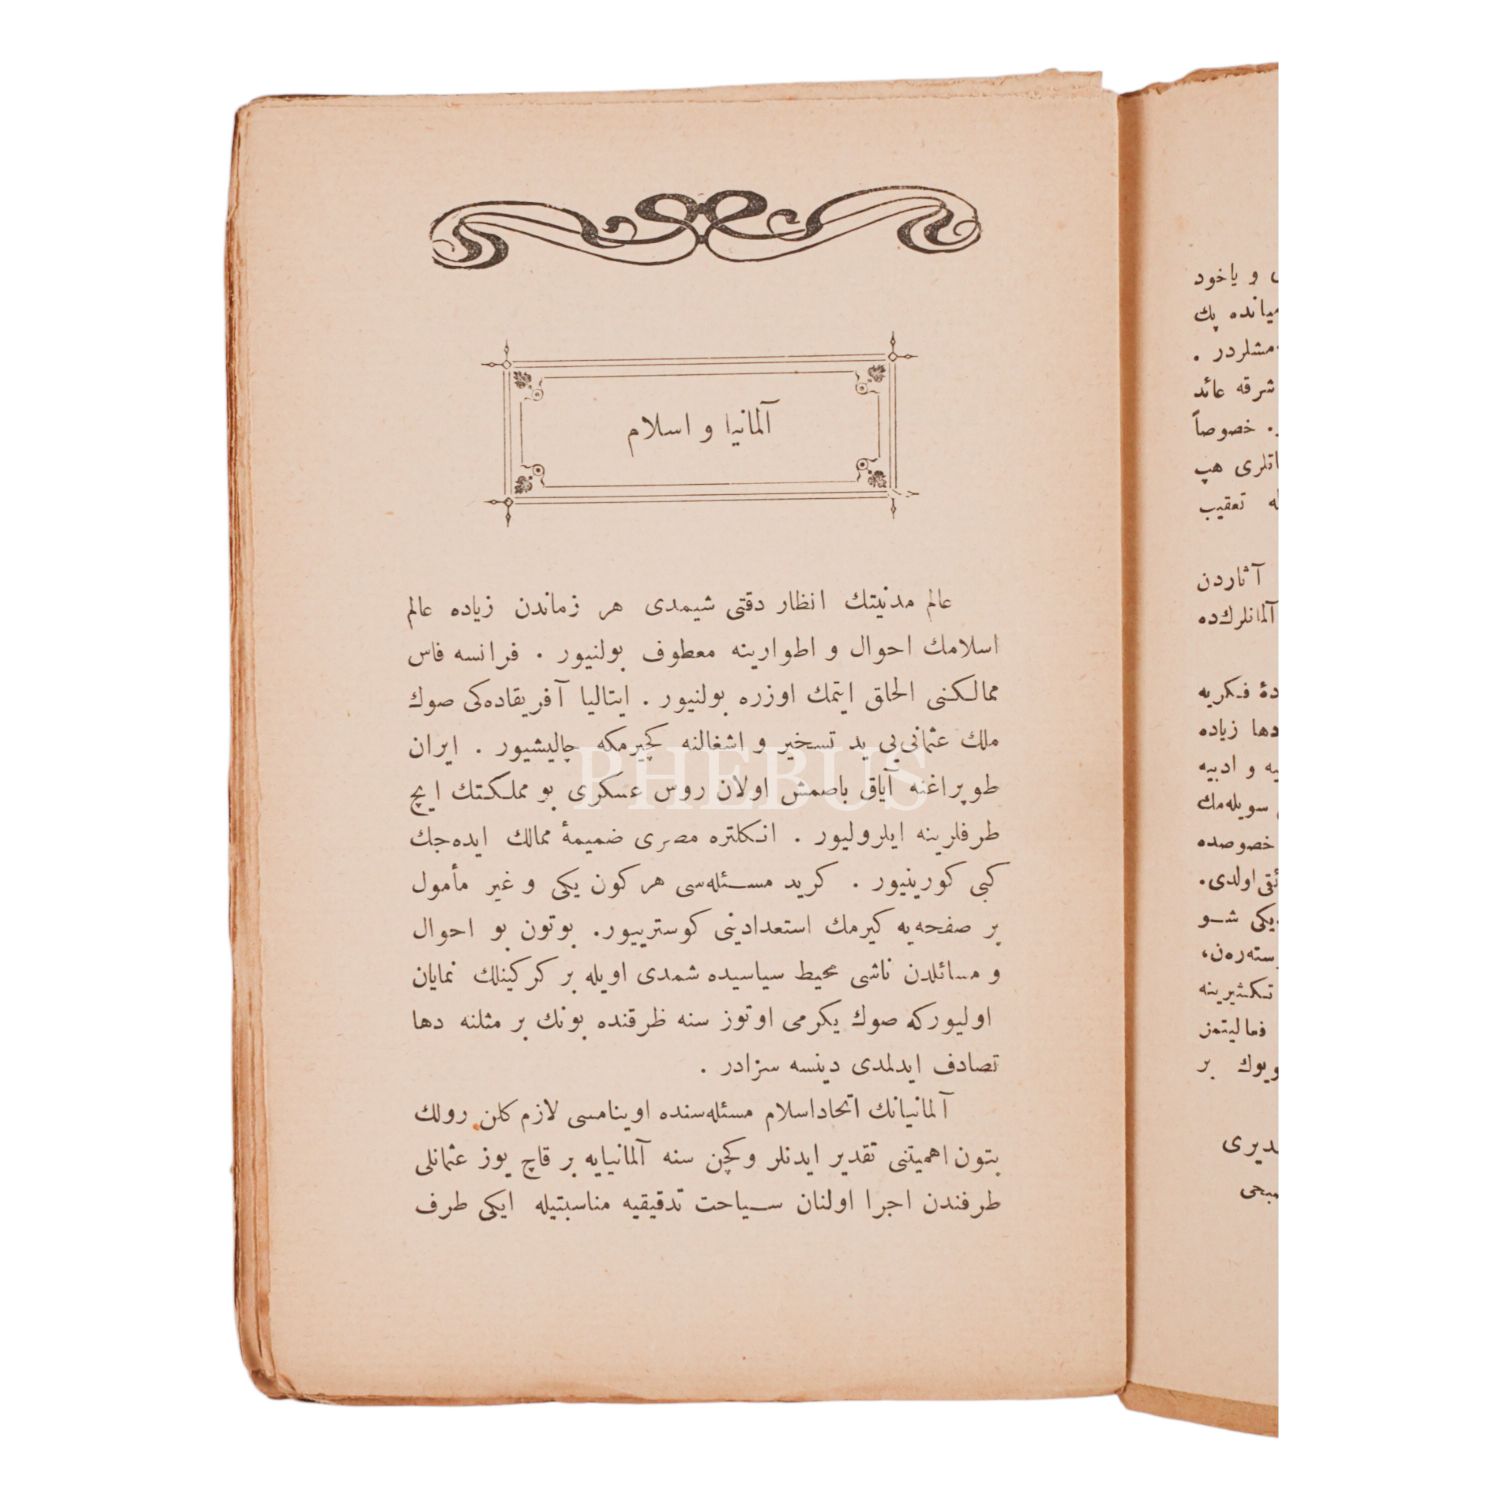 آلمانیا و اسلام
عالم مدنیتك انظار دقتی شیمدی هر زماندن زیاده عالم
اسلامك احوال و اطوارینه معطوف بولنیور . فرانسه فاس
ممالكنی الحاق ایتمك اوزره بولنیور . ایتالیا آفریقاده‌كی صوك
ملك عثمانی‌یی ید تسخیر و اشغالنه كچیرمكه چالیشیور . ایران
طوپراغنه آیاق باصمش اولان روس عسكری بو مملكتك ایچ
طرفلرینه ایلرولیور . انكلتره مصری ضمیمهٔ ممالك ایده‌جك
كبی كورینیور . كرید مسئله‌سی هر كون یكی و غیر مأمول
بر صفحه‌یه كیرمك استعدادینی كوسترییور. بوتون بو احوال
و مسائلدن ناشی محیط سیاسیده شمدی اویله بر كركینلك نمایان
اولیوركه صوك یكرمی اوتوز سنه ظرفنده بونك بر مثلنه دها
تصادف ایدلمدی دینسه سزادر .
آلمانیانك اتحاداسلام مسئله‌سنده اوینامسی لازم كلن رولك
بتون اهمیتنی تقدیر ایدنلر وكچن سنه آلمانیایه بر قاچ یوز عثمانلی
طرفندن اجرا اولنان سیاحت تدقیقیه مناسبتیله ایكی طرف
PHEBUS
و یاخود
میانده پك
مشلردر .
شرقه عائد
. خصوصاً
اتلری هپ
تعقیب
آثاردن
آلمانلرك‌ده
دهٔ فكریه
دها زیاده
یه و ادبیه
سویله‌مك
خصوصده
ئقی اولدی.
یكی شو
سته‌رەن،
تكثیرینه
فعالیتمز
ویوك بر
دیری
صبحی